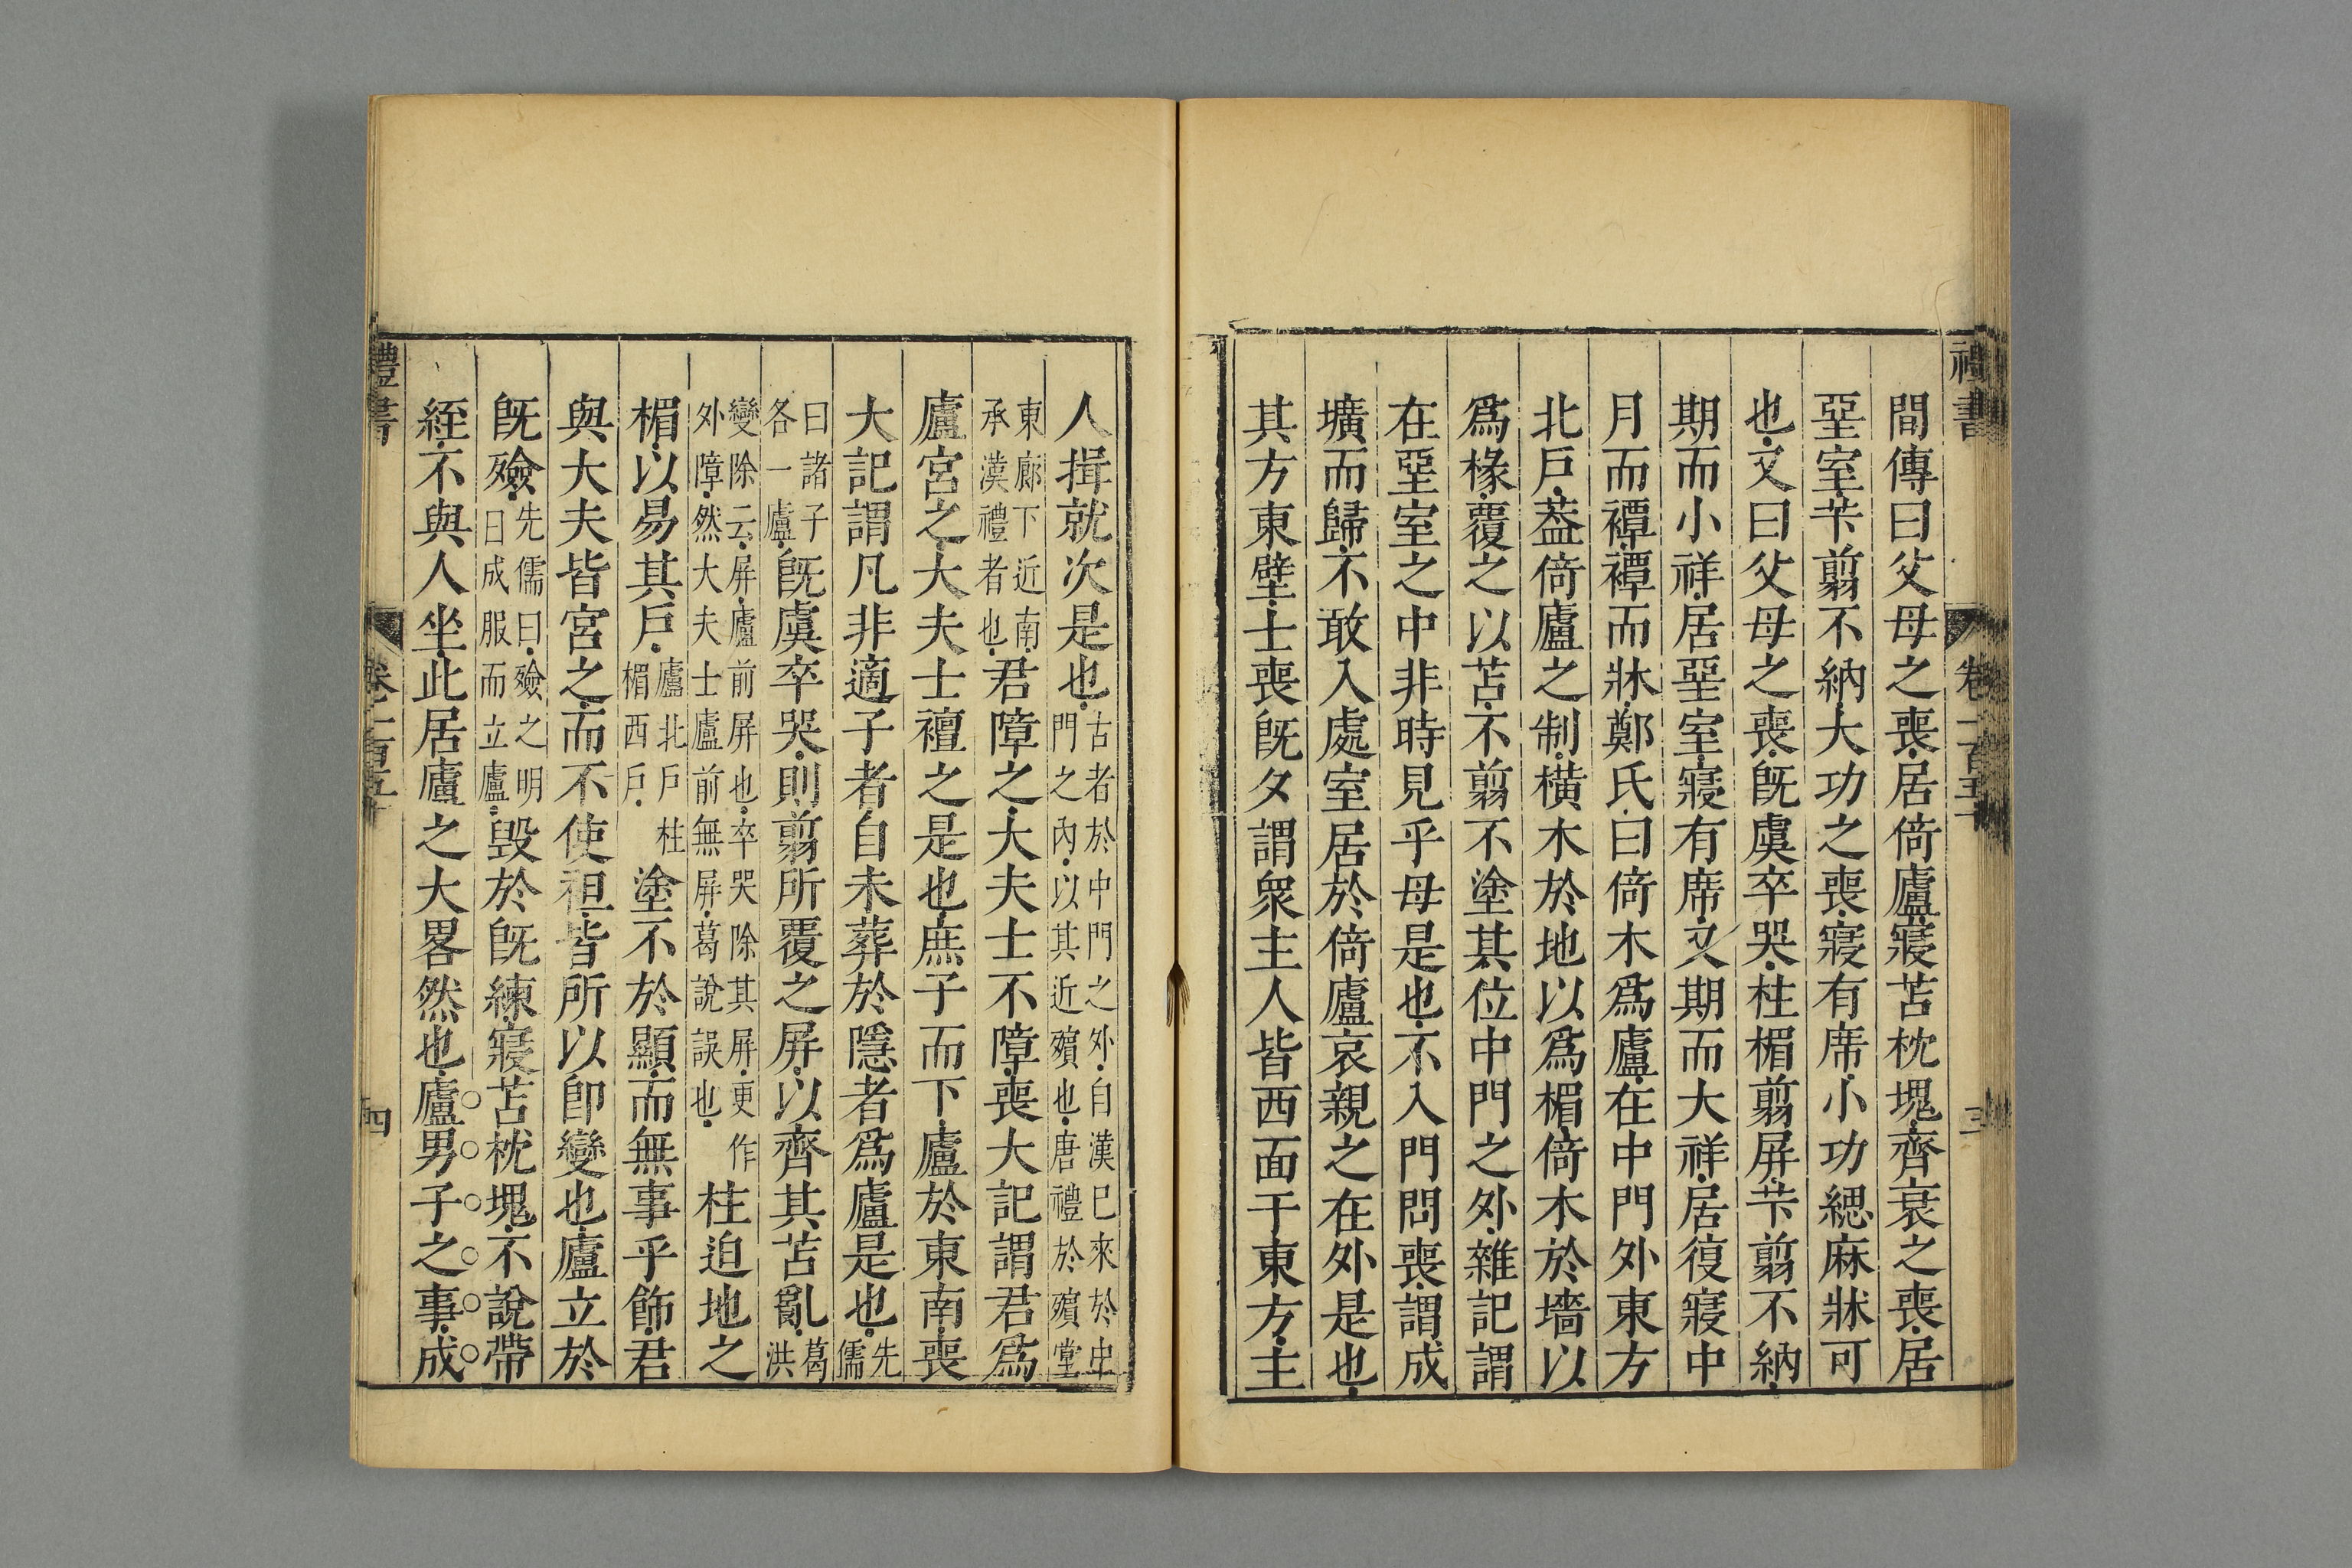 禮書
卷一百五十
三
間傳曰父母之喪居倚廬寢苫枕塊齊衰之喪居
堊室芐翦不納大功之喪寢有席小功緦麻牀可
也又曰父母之喪旣虞卒哭柱楣翦屏芐翦不納
期而小祥居堊室寢有席又期而大祥居復寢中
月而禫禫而牀鄭氏曰倚木爲廬在中門外東方
北戶葢倚廬之制橫木於地以爲楣倚木於墻以
爲椽覆之以苫不翦不塗其位中門之外雜記謂
在堊室之中非時見乎母是也不入門問喪謂成
壙而歸不敢入處室居於倚廬哀親之在外是也
其方東壁士喪旣夕謂衆主人皆西面于東方主
人揖就次是也古者於中門之外自漢已來於中
門之內以其近殯也唐禮於殯堂
東廊下近南
承漢禮者也君障之大夫士不障喪大記謂君爲
廬宮之大夫士襢之是也庶子而下廬於東南喪
大記謂凡非適子者自未葬於隱者爲廬是也先
儒
曰諸子
各一廬旣虞卒哭則翦所覆之屏以齊其苫亂葛
洪
變除云屏廬前屏也卒哭除其屏更作
外障然大夫士廬前無屏葛說誤也柱迫地之
楣以易其戶廬北戶柱
楣西戶塗不於顯而無事乎飾君
與大夫皆宮之而不使袒皆所以卽變也廬立於
旣殮先儒曰殮之明
日成服而立廬毀於旣練寢苫枕塊不說帶
絰不與人坐此居廬之大畧然也廬男子之事成
禮書
卷一百五十
四